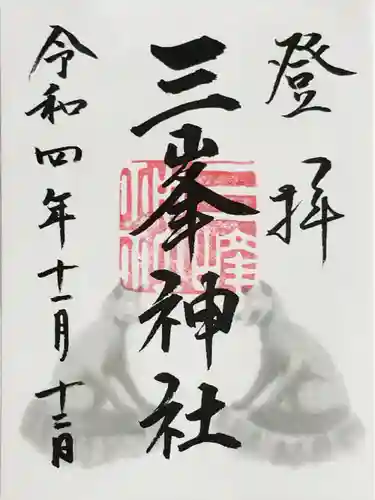 登拝
三峯神社
令和四年十一月十二日
三峰神社